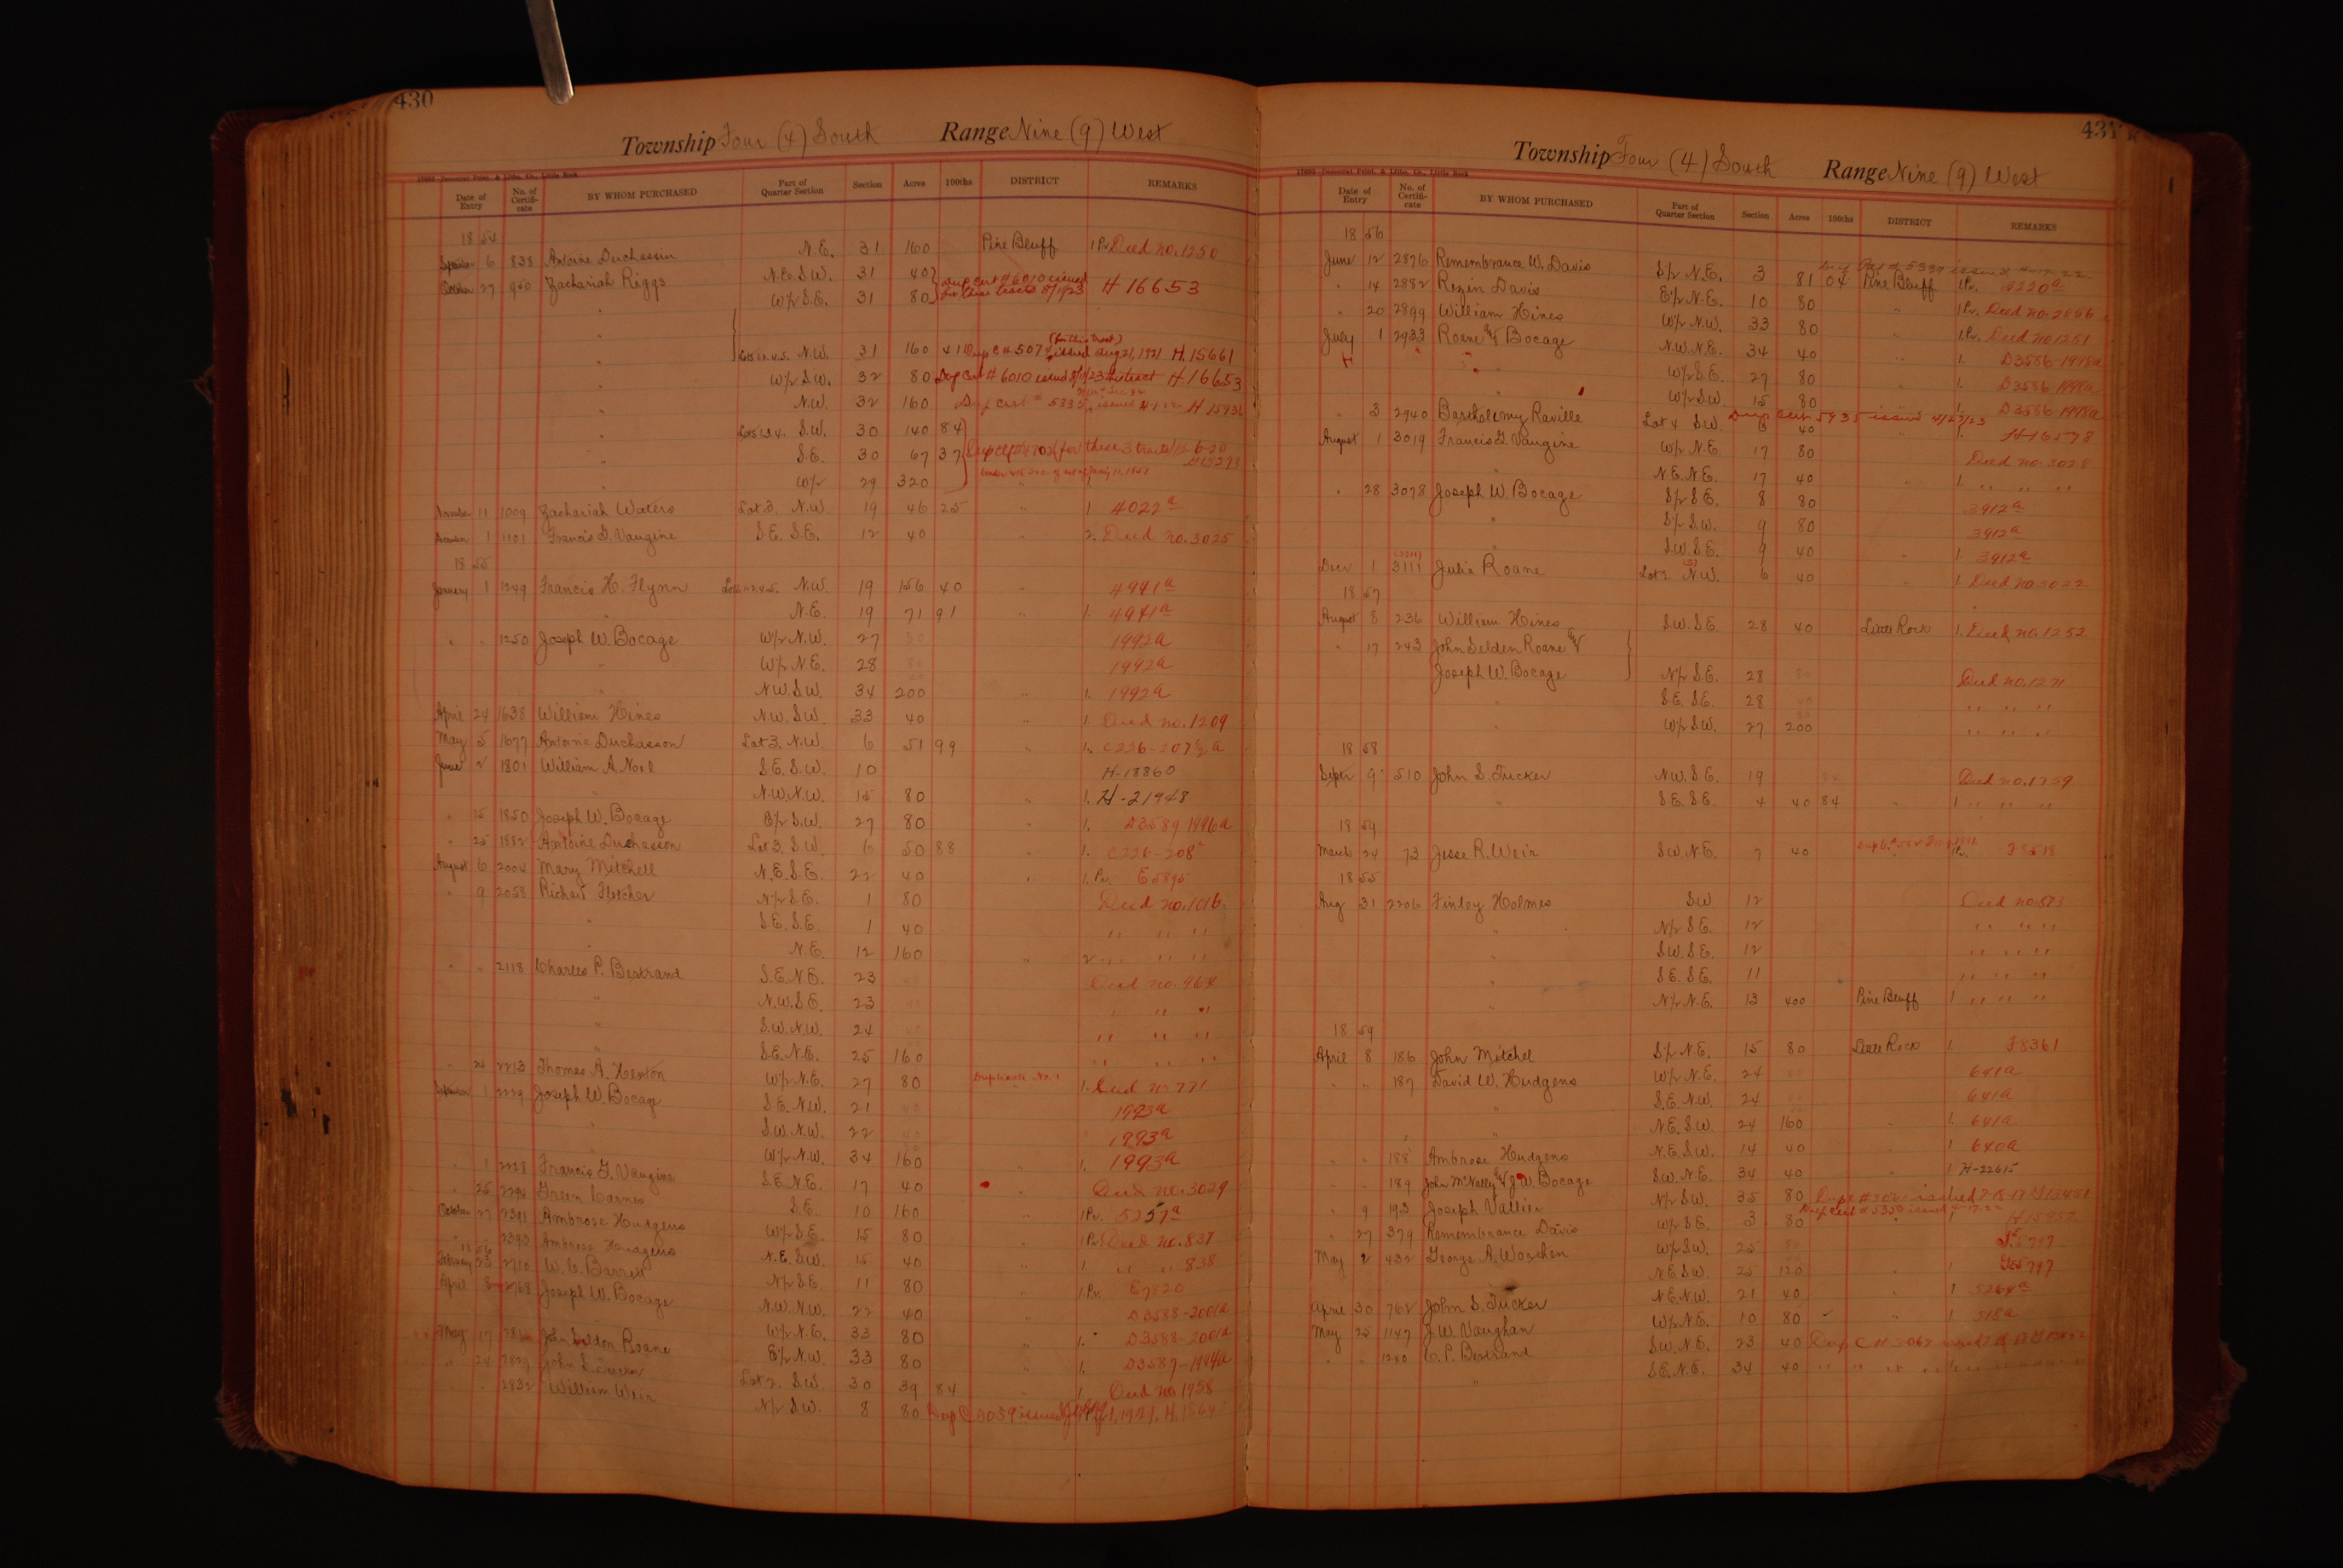 430
Township Four (4) South Range Nine (9) West
Date of Entry No. of Certificate BY WHOM PURCHASED Part of Quarter Section Section Acres 100ths DISTRICT REMARKS
1854
6 838 Antoine Duchassin N.E. 31 160 Pine Bluff 1 Pr. Deed no. 1250
October 27 950 Zachariah Riggs N.E. S.W. 31 40 Dup Cert # 6010 issued
" W/2 S.E. 31 80 for these tracts 8/1/23 H 16653
(for this tract)
" N.W. 31 160 41 issued Aug 21, 1921 H. 15661
" W/2 S.W. 32 80 Dup Cert # 6010 issued 8/1/23 this tract H. 16653
" N.W. 32 160
" S.W. 30 140 84
" S.E. 30 67 37 (for these 3 tracts)
" W/2 29 320
November 11 1009 Zachariah Waters Lot 3. N.W. 19 46 25 " 1. 4022a
1 1101 Francis G. Vaugine S.E. S.E. 12 40 " 2. Deed no. 3025
1855
January 1 1249 Francis H. Flynn N.W. 19 156 40 " 4941a
" N.E. 19 71 91 " 1. 4941a
" " 1250 Joseph W. Bocage W/2 N.W. 27 1992a
" W/2 N.E. 28 1992a
" N.W. S.W. 34 200 " 1. 1992a
April 24 1638 William Hines N.W. S.W. 33 40 " 1. Deed no. 1209
May 5 1677 Antoine Duchasson Lot 3. N.W. 6 51 99 " 1.
June 2 1801 William A. Noel S.E. S.W. 10 H-18860
" N.W. N.W. 15 80 " 1. H-21948
" 15 1850 Joseph W. Bocage E/2 S.W. 27 80 " 1. D3589 1996a
" 25 1882 Antoine Duchasson Lot 3. S.W. 6 50 88 " 1. C226-208
August 6 2004 Mary Mitchell N.E. S.E. 22 40 " 1. Pr. E5895
" 9 2058 Richard Fletcher N/2 S.E. 1 80 Deed no. 1016
" S.E. S.E. 1 40 " " "
" N.E. 12 160 " 2 " " "
" " 2118 Charles P. Bertrand S.E. N.E. 23 Deed no. 964
" N.W. S.E. 23 " "
" S.W. N.W. 24 " " "
" S.E. N.E. 25 160 " " "
" 24 2213 Thomas A. Heaton W/2 N.E. 27 80 Duplicate No. 1 1. Deed no 721
1 2229 Joseph W. Bocage S.E. N.W. 21 1993a
" S.W. N.W. 22 1993a
W/2 N.W. 34 160 " 1. 1993a
" 1 2228 Francis G. Vaugine S.E. N.E. 17 40 " Deed no. 3029
" 25 Green Carnes S.E. 10 160 " 1 Pr. 5257a
October 27 2391 Ambrose Hudgens W/2 S.E. 15 80 " 1 Pr. Deed no. 837
" 2393 Ambrose Hudgens N.E. S.W. 15 40 " 1. " " 838
1856
February 23 2710 W. C. Barrett N/2 S.E. 11 80 " 1. Pr. E7820
April 8 2768 Joseph W. Bocage N.W. N.W. 22 40 D3588-2001a
W/2 N.E. 33 80 " 1. D3588-2001a
May 17 John Selden Roane E/2 N.W. 33 80 " 1. D3587-1994a
" 24 John S. Tucker Lot 2. S.W. 30 39 84 " 1. Deed no. 1958
" 2832 William Weir N/2 S.W. 8 80
431
Township Four (4) South Range Nine (9) West
Date of Entry No. of Certificate BY WHOM PURCHASED Part of Quarter Section Section Acres 100ths DISTRICT REMARKS
1856
June 12 2876 Remembrance W. Davis S/2 N.E. 3 81 04 Pine Bluff 1 Pr. 4220a
" 14 2882 Rezin Davis E/2 N.E. 10 80 " 1 Pr. Deed no. 2866
" 20 2899 William Hines W/2 N.W. 33 80 " 1 Pr. Deed no 1251
July 1 2933 Roane & Bocage N.W. N.E. 34 40 " 1. D3586-1998a
" W/2 S.E. 27 80 " 1. D3586 1998a
W/2 S.W. 15 80 " 1. D3586 1998a
" 3 2940 Bartholomy Raville Lot 4 S.W. 6 40 Dup Cert 5935 issued 4/23/23 1. H-16578
August 1 3019 Francis G. Vaugine W/2 N.E 17 80 Deed no. 3028
" N.E. N.E. 17 40 " 1. " " "
" 28 3078 Joseph W. Bocage S/2 S.E. 8 80 3912a
" S/2 S.W. 9 80 3912a
" S.W. S.E. 9 40 " 1. 3912a
Decr 1 3111 Julia Roane Lot 2 N.W. 6 40 " 1. Deed no. 3022
1857
August 8 236 William Hines S.W. S.E. 28 40 Little Rock 1. Deed no. 1252
" 17 243 John Selden Roane &
Joseph W. Bocage N/2 S.E. 28 Deed no. 1271
" S.E. S.E. 28 " " "
" W/2 S.W. 27 200 " " "
1858
Septr 9 510 John S. Tucker N.W. S.E. 19 Deed no. 1759
" S.E. S.E. 4 40 84 " 1 " " "
1859
March 24 73 Jesse R. Weir S.W. N.E. 7 40 1 Pr.
1855
Aug 31 2206 Finley Holmes S.W 12 Deed no. 573
" N/2 S.E. 12 " " "
" S.W. S.E. 12 " " "
" S.E. S.E. 11 " " "
" N/2 N.E. 13 400 Pine Bluff 1 " " "
1859
April 8 186 John Mitchel S/2 N.E. 15 80 Little Rock 1 F8361
" " 187 David W. Hudgens W/2 N.E. 24 641a
" S.E. N.W. 24 641a
" N.E. S.W. 24 160 " 1. 641a
" " 188 Ambrose Hudgens N.E. S.W. 14 40 " 1 640a
" " 189 John McNally & J.W. Bocage S.W. N.E. 34 40 " 1 H-22615
" 9 193 Joseph Vallier N/2 S.W. 35 80
" 27 379 Remembrance Davis W/2 S.E. 3 80 Dup Cert # 5350 issued
May 2 432 George A. Worthen W/2 S.W. 25
N.E. S.W. 25 120 " 1
" N.E. N.W. 21 40 " 1 5264a
April 30 762 John S. Tucker W/2 N.E. 10 80 " 1 518a
May 25 1147 J. W. Vaughan S.W. N.E. 23 40
" " 1240 C. P. Bertrand S.E. N.E. 34 40